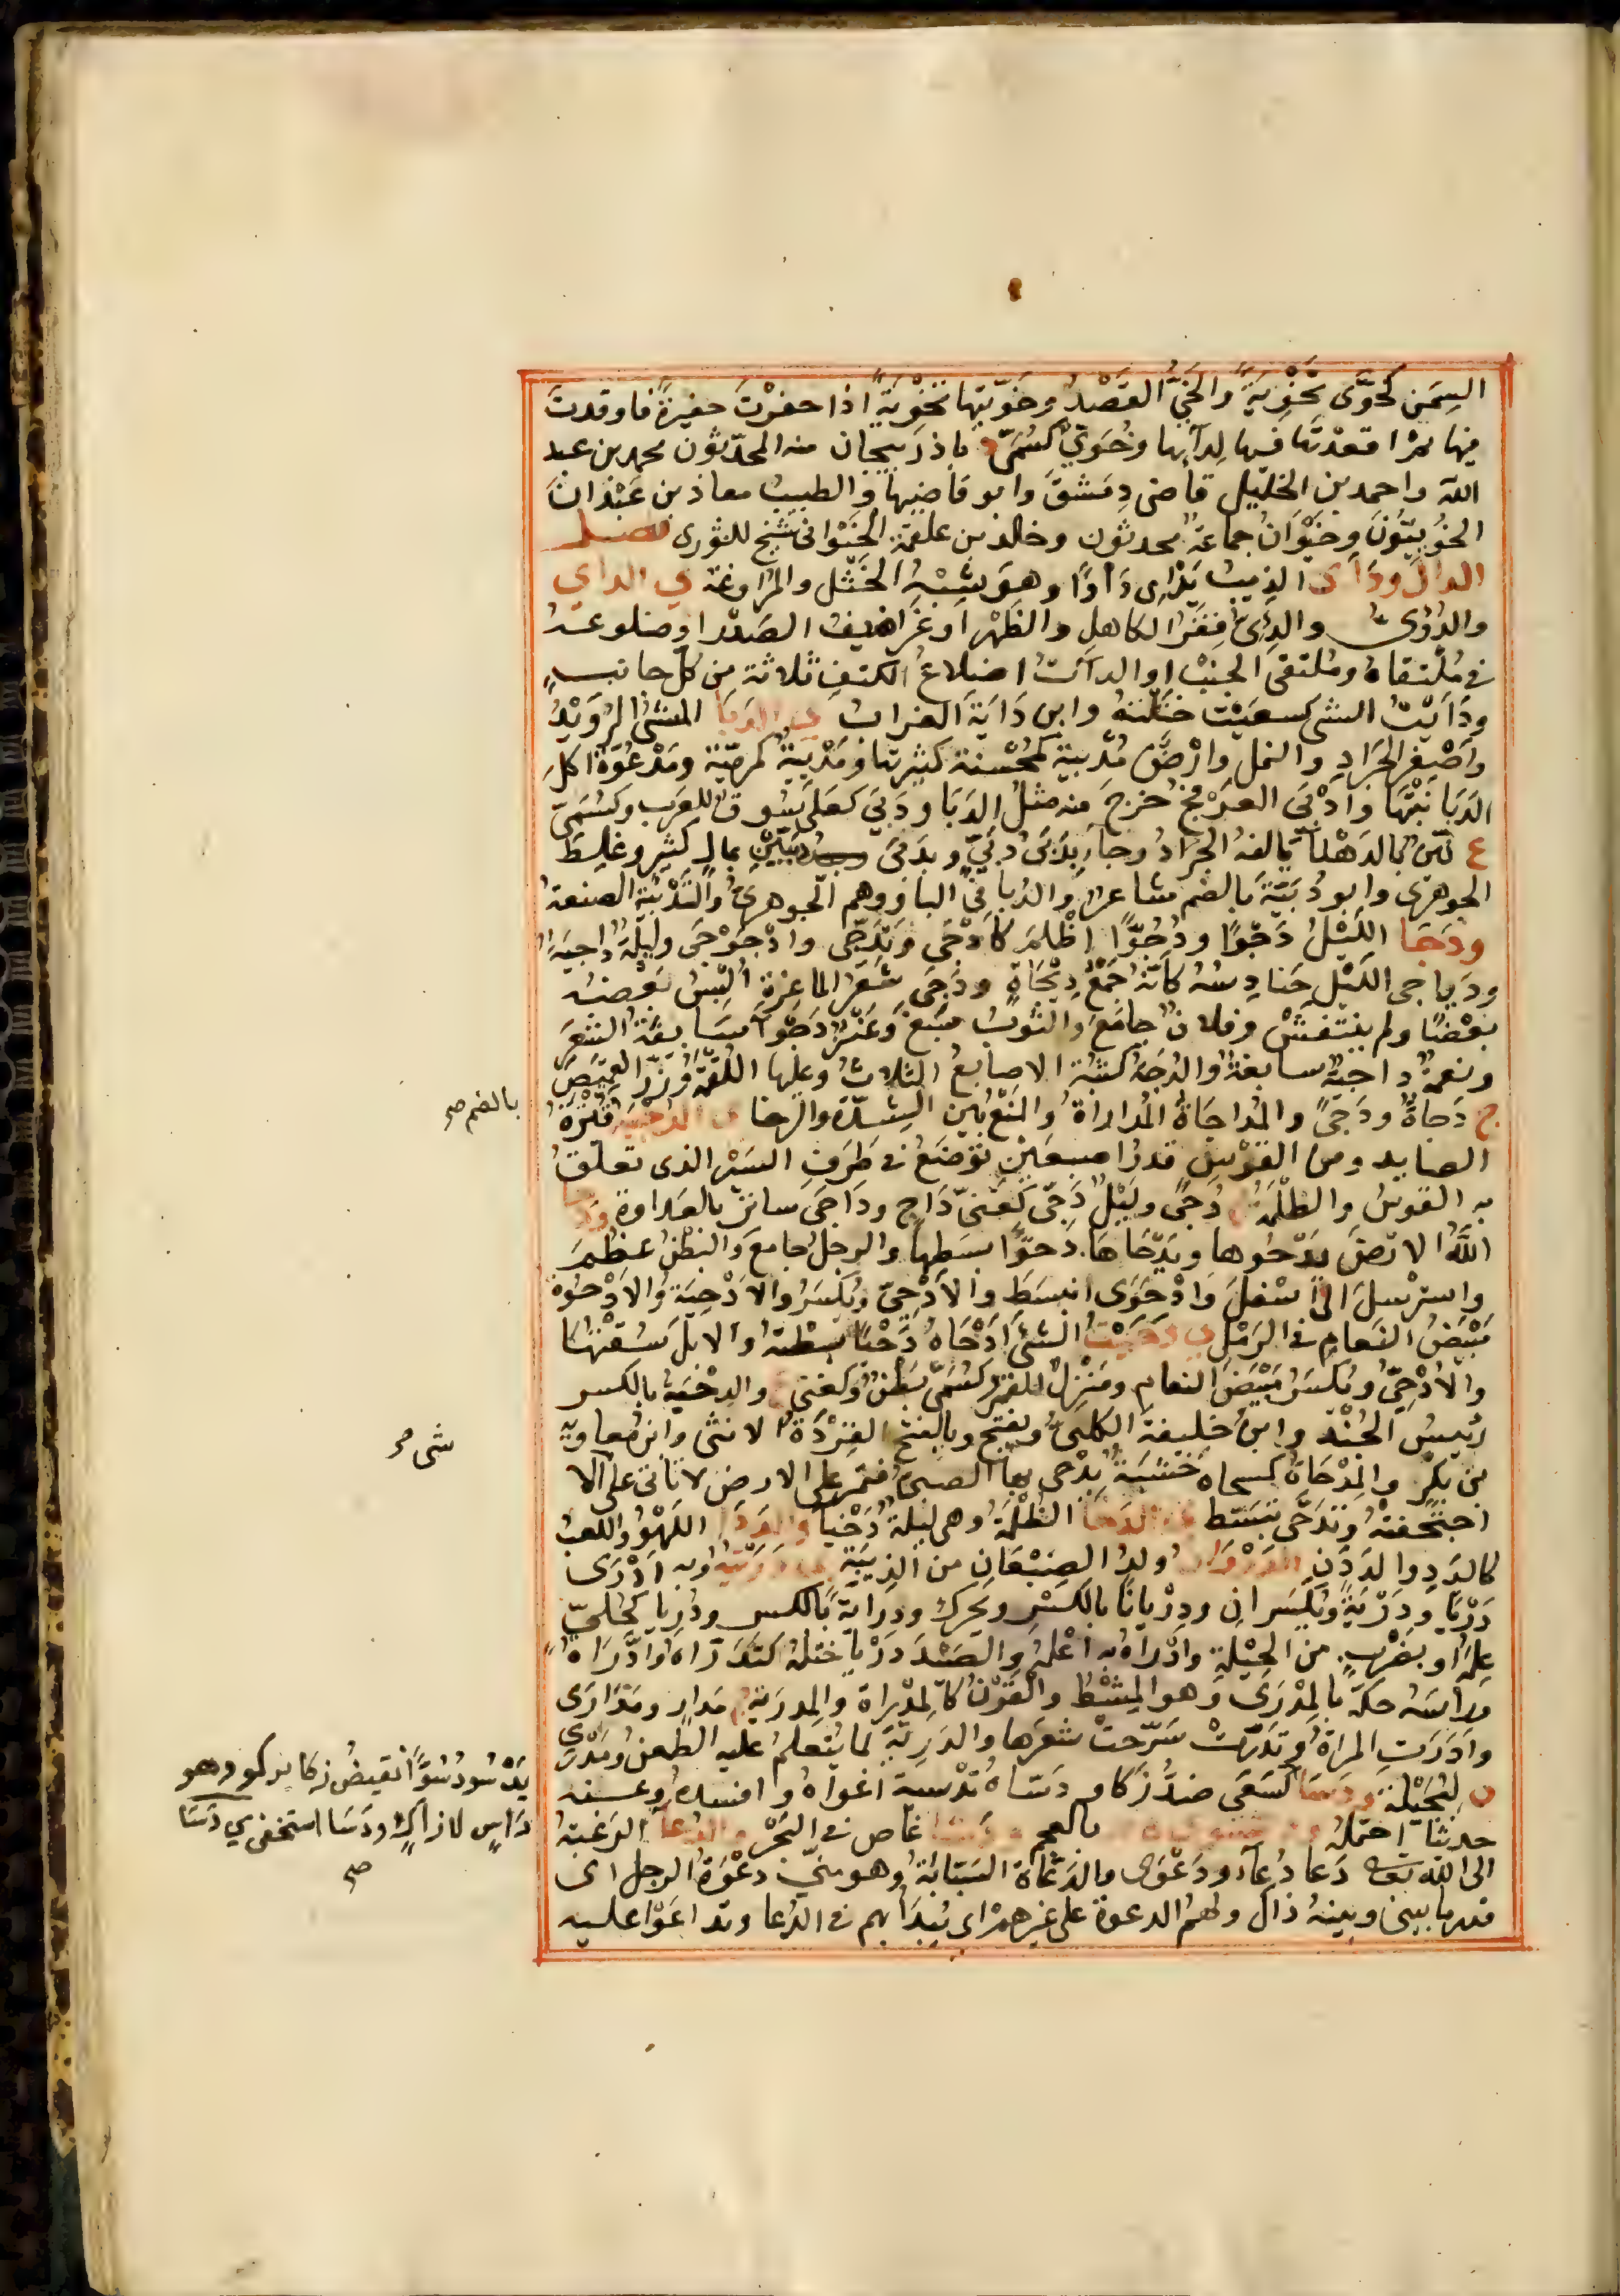 السِمَن كخَوَّى تَخْوِيَةً والخَيُّ القَصْدُ وخَوَّيتها تَخْوِيَةً اذا حفرْتَ حفيرةً فاوقدتَ
فيها ثم اقعدْتَها فيها لِدآئِها وخُوَيٌّ كسُمَىٍّ د باذرَبيجان منه المحدّثون محمد بن عبد
الله واحمد بن الخليل قاضى دِمَشقَ وابو قاضيها والطبيب معاذ بن عَبْدان
الخُوَيِيّونَ وخَيْوَانُ جماعة محدثون وخالد بن علقمة الخَيْوانى شيخ للثورى فصل
الدال ودَأَى الذيبُ يَدْاى دَاْوًا وهو شِبْهُ الخَتْل والمراوغة ي الداى
والدُؤىُّ والدِئىُّ فِقَرُ الكاهل والظهْر او غَراضيف الصَدْر او ضلوعه
فى مُلْتقاهُ ومُلتقى الجنْب او الدآئات اضلاعُ الكتف ثلاثة من كلّ جانب
ودَاَيْتُ الشى كسعَيْت خَتَلتهُ وابن دَايَة الغراب ي الدَبَا المشىُ الرُوَيْدُ
واَصْغر الجَرادِ والنمل وارْضٌ مُدْبِية كمُحْسنة كثيرتها ومَدْبِيّةٌ كمرميّة ومَدْعُوّة اكل
الدَبَا نَبْتَها وادْبَى العَرْفَجُ خرجَ منه مثلُ الدَبَا ودَبَى كعلى سُوق للعرب وكسُمَىّ
ع ليّن بالدهْنآ يالفهُ الجرَادُ وجآ بِدَبَى دُبَىٍّ وبدَبَى دُبَيَّيْنِ بمالٍ كثير وغلِط
الجوهرى وابو دُبَيّة بالضم شاعر والدُبا فى البا ووهم الجوهرىُّ والتَدْبيَة الصنعة
ودَجَا الليْلُ دَجْوًا ودُجُوًّا اظْلمَ كاَدْجَى وتَدَجّى وادْجَوْجَى وليلة داجيَة
ودَياجى الليْلِ حَنادِسُهُ كانّه جَمْعُ دِيْجَاةٍ ودَجَى شَعَرُ الماعِزة البَسَ بعضه
بعْضًا ولم ينتفشْ وفلان جامعَ والثوبُ سَبغَ وعَنْزٌ دَجْوآ سَابغَة الشعر
ونعمة داجيَة سابغة والدُجَة كثُبَة الاصابعُ الثلاث وعليها اللقمَة وزِرّ القميص
ج دُجاةٌ ودُجًى والمُداجَاةُ المُداراة والمَنْعُ بَين الشِدّة والرخا ي الدُجْيَة قُتْرة
الصايد ومن القوْس قدرُ اصبعَيْنِ توْضَعُ فى طَرَف السَيْر الذى تعلّق
به القوسُ والظُلْمَة ج دُجًى وليْلٌ دَجِىٌّ كغَنىٍّ دَاجٍ ودَاجَى ساتَر بالعداوة ودَحا
اللهُ الارْضَ يَدْحُوها ويَدْحَاها دَحْوًا بسَطها والرجل جامعَ والبَطنُ عظُمَ
واسترْسلَ الى اسْفلَ وادْحَوَى انبسَطَ والاُدْحِىّ ويُكسَرُ والاُدْحِيَة والاُدْحُوّة
مَبْيضُ النَعام فى الرَمْل ي دَحَيْتُ الشىَ اَدْحَاهُ دَحْيًا بسَطته والابلَ سُقتهَا
والاُدْحِىّ ويُكسَرُ مَبْيَضُ النعام ومَنزِلٌ للقمر وكسُمَىّ بَطنٌ وكغَنى ع والدِحْيَة بالكسر
رئيسُ الجُنْد وابنُ خليفة الكلبىُّ ويفتح وبالفتح القِرْدَةُ الانثى وابن مُعاويَة
بن بَكر والمِدْحَاةُ كمسحاة خشَبَةٌ يَدْحى بها الصبىُّ فتمرّ على الارض لا تاتى على الا
اجْتَحفتْهُ وتَدَحّى تَبَسّط ي الدَخَا الظُلْمَة وهى ليلة دَخْيآ والدَدَا اللهْوُ واللعبُ
كالدَدِ والدَدَنِ الدَرْوَانُ ولدُ الضِبْعَان من الذِيبَة ي دَرَيْتهُ وبه اَدْرِى
دَرْيًا ودَرْيَةً ويُكسَران ودِرْيانًا بالكسْر ويُحرك ودِرَايَة بالكسر ودُرِيا كحُلِىّ
عِلمَهُ او بضَرْبٍ من الحِيْلة وادْراهُ به اعْلمَهُ والصَيْدَ دَرْيا ختَلهُ كتَدَرّاهُ وادّرَاهُ
وراسَهُ حكهُ بالمِدْرَى وهو المِشْطُ والقَرْنُ كالمِدْراة والمِدرَية ج مَدارٍ ومَدَارَى
وادّرَتِ المراَةُ وتَدَرّتْ سَرّحتْ شعَرها والدَرِيّة لما يُتعلمُ عليه الطعنُ ومَدْرَى
ة لبُجَيْلة ودَسَا كسَعَى ضدُّ زَكا ودَسّاهُ تَدْسية اغواهُ وافسدهُ وعنه
حديثا احتمَلهُ بالعجم ودَشا غاص فى البَحْر والدُعآ الرَغبَة
الى الله تعالى دَعا دُعآء ودَعْوَى والدَعّاءَة السَبّابَةُ وهو منّى دعْوَةَ الرجل اى
قدر ما بينى وبينهُ ذاك ولهُم الدعوة على غيرهم اى يُبْدَا بهم فى الدُعا وتداعَوْا عليه
بالضم صح
شى صح
يَدْسُو دُسُوًّا نقيضُ زكا يزكو وهو
دَاسٍ لا زاكٍ ودَسَا استخفى ي دَسَا
صح